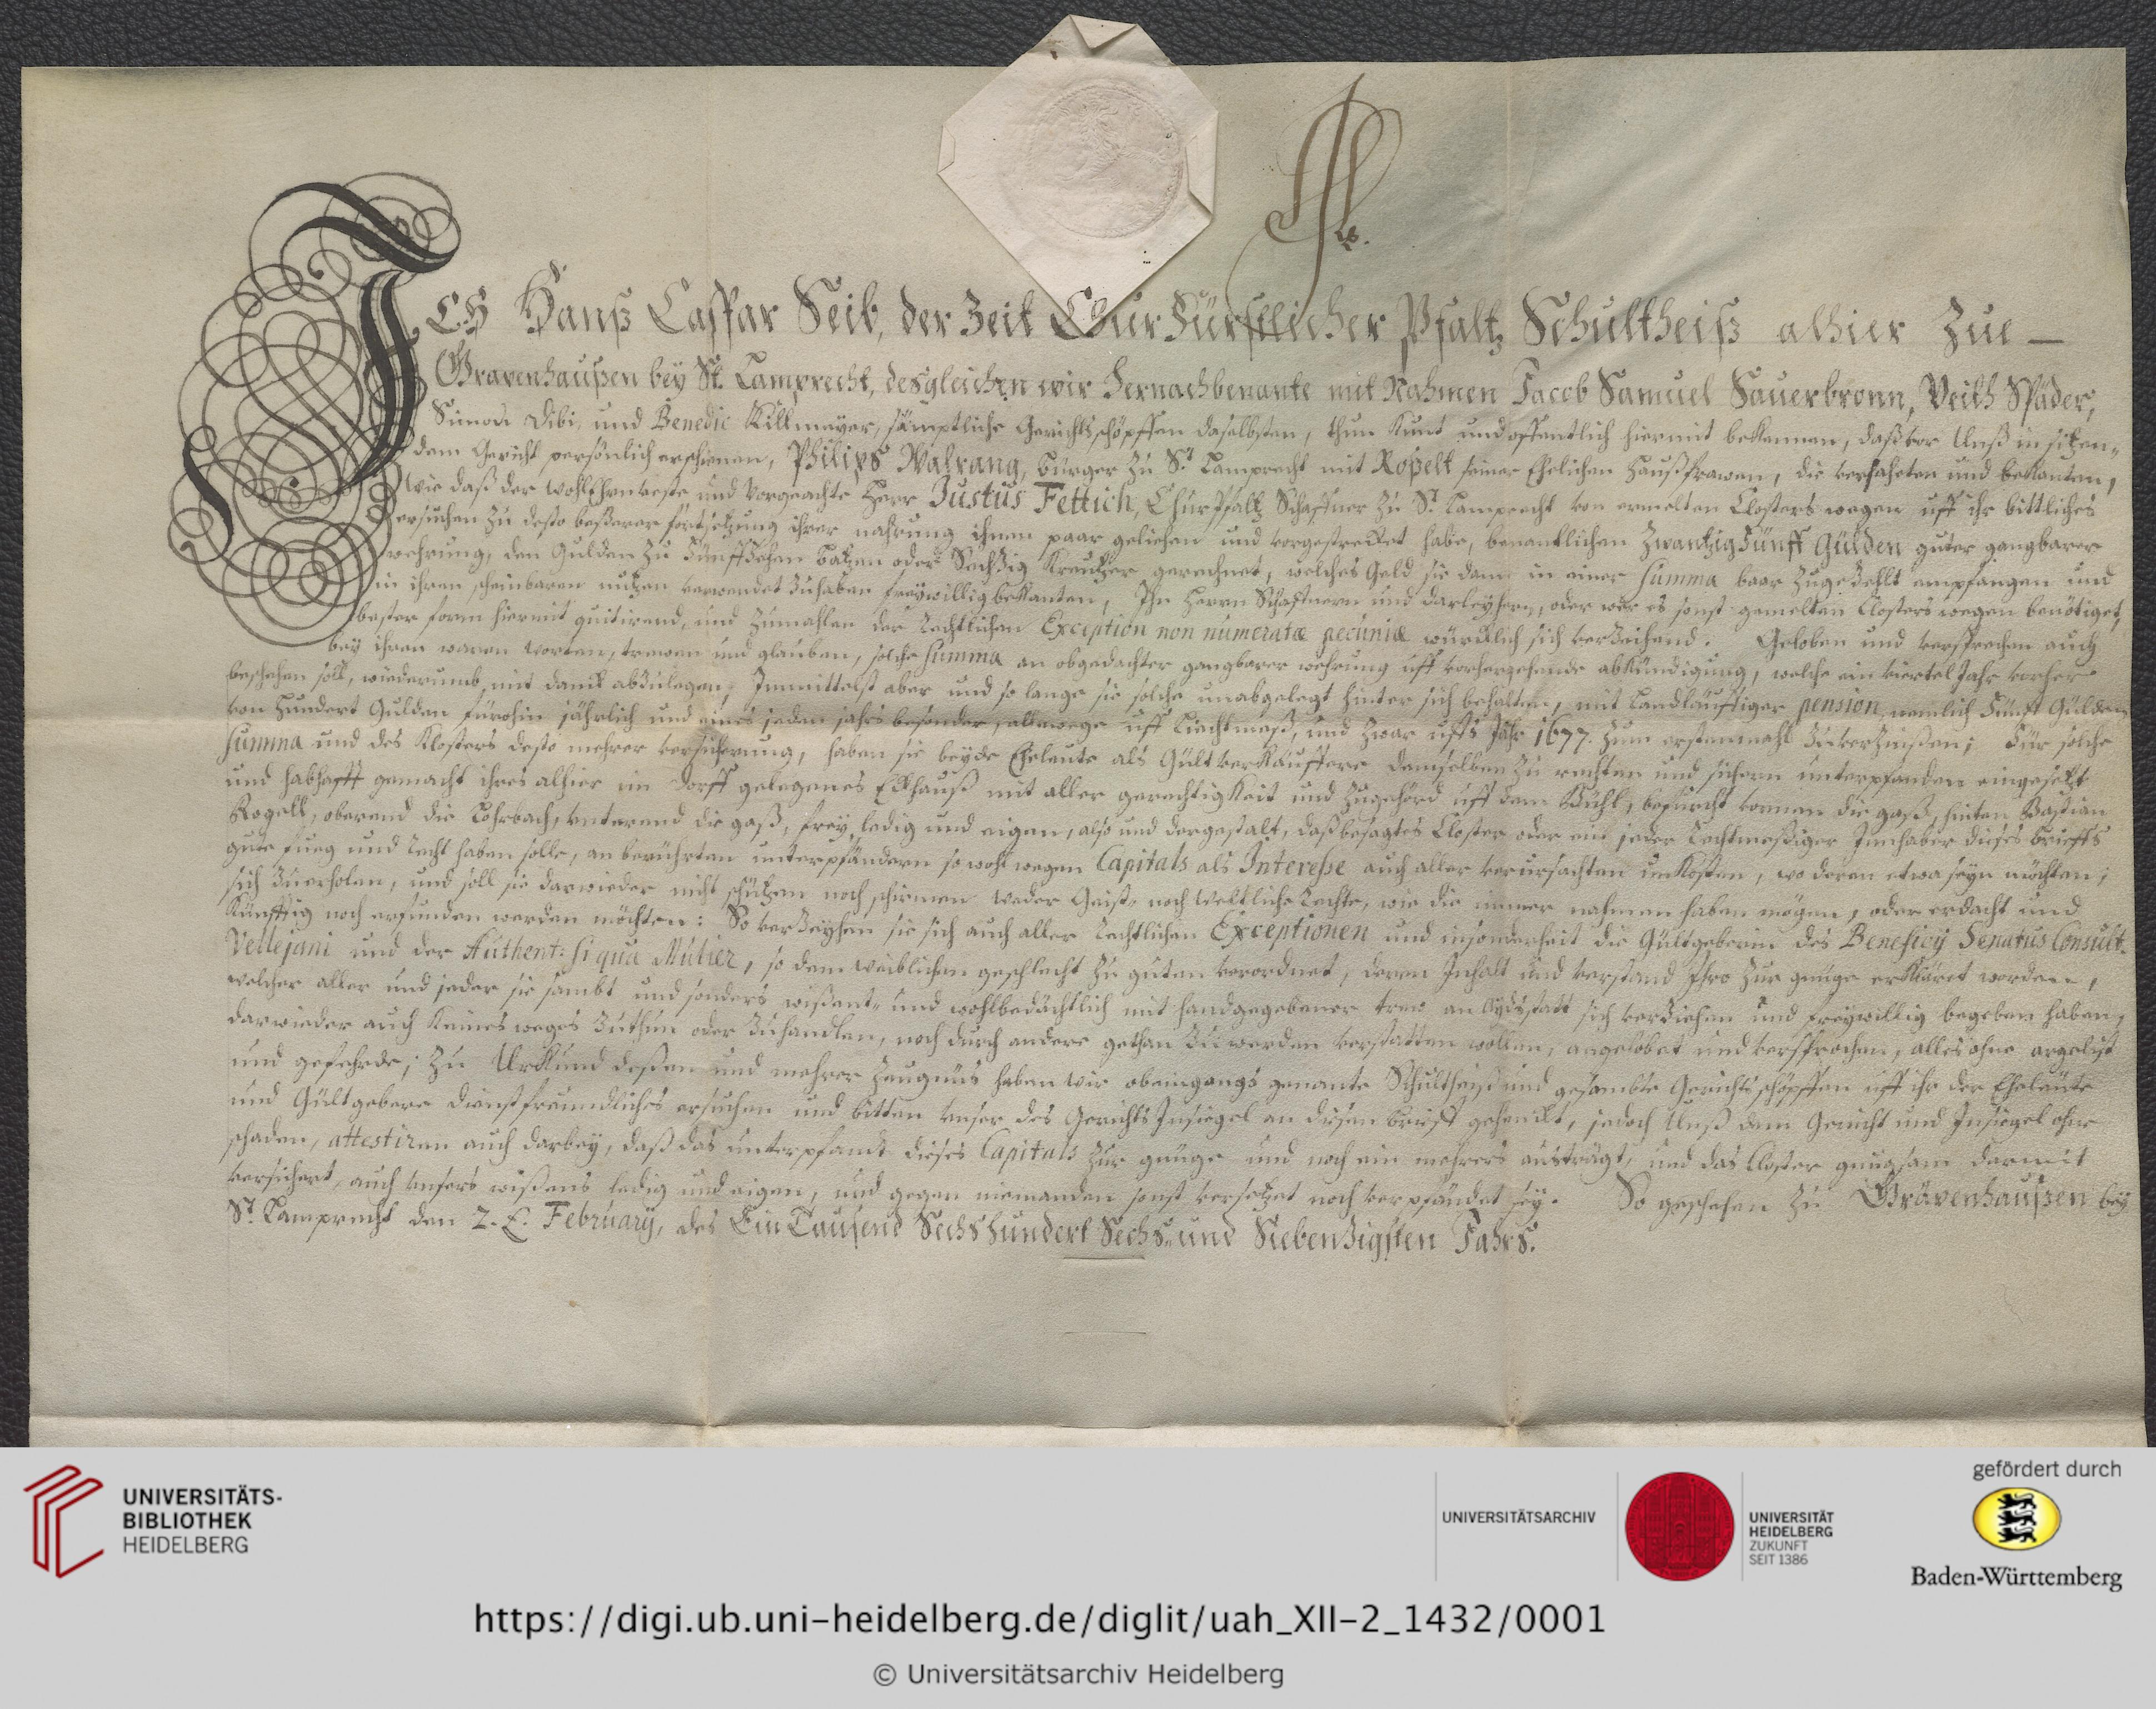 ICH Hanß Caspar Seib, der Zeit ChurFürstlicher Pfaltz Schultheiß alhier Zue
Gravenhaußen bey St. Lamprecht, desgleichen wir hernachbenante mit Nahmen Jacob Samuel Sauerbronn, Veith Späder,
Simon Dibi, und Benedic Killmayer, sämptliche Gerichtsschöpffen daselbsten, thun kunt und offentlich hiermit bekennen, daß vor Unß in sitzen-
dem Gericht persönlich erschienen, Philips Walrang, bürger zu St. Lamprecht mit Roßelt seiner Ehelichen Haußfrawen, die verjaheten und bekanten,
wie daß der wohlEhrnveste und Vorgeachte Herr Justus Fettich, ChurPfaltz Schaffner zu St. Lamprecht von ermelten Closters wegen uff ihr bittliches
ersuchen zu desto beßerer fortsetzung ihrer nahrung ihnen paar geliehen und vorgestrecket habe, benantlichen Zwantzig Fünff Gülden guter gangbarer
wehrung, den Gulden zu Fünffzehen batzen oder Sechzig Kreutzer gerechnet, welches Geld sie dann in einer summa baar zugezehlt empfangen und
in ihren scheinbaren nutzen verwendet zuhaben freywillig bekanten, Ihn Herrn Schaffnern und darleyhern, oder wer es sonst gemelten Closters wegen benötiget,
bester form hiermit quitirend, und zumahlen der Rechtlichen Exception non numeratæ pecuniæ würcklich sich verzeihend. Geloben und versprechen auch
bey ihren waren worten, trewen und glauben, solche summa an obgedachter gangbarer wehrung uff vorhergehende abkündigung, welche ein viertel Jahr vorher
beschehen soll, wiederumb mit danck abzulegen, Immittelst aber und so lange sie solche unabgelegt hinter sich behalten, mit Landläufftiger pension, nemlich Fünff Gülden
von Hundert Gulden fürohin jährlich und eines jeden jahrs besonder, allewege uff Liechtmeß, und zwar uffs Jahr 1677. zum erstenmahl zu verzinßen; Für solche
summa und des Closters desto mehrer versicherung, haben sie beyde Eheleute als Gültverkäuffere demselben zu rechten und sichern unterpfanden eingesetzt
und habhafft gemacht ihres alhier im Dorff gelegenes Eckhauß mit aller gerechtigkeit und zugehörd uff dem Bühl, beforcht vornen die gaß, hinten Bastian
Rogell, oberend die Rohrbach, unterend die gaß, frey, ledig und eigen, also und dergestalt, daß besagtes Closter oder ein jeder Rechtmeßiger Innhaber dieses brieffs
gute fueg und Recht haben solle, an berührten unterpfändern sowohl wegen Capitals als Interesse auch aller verursachten unkosten, wo deren etwa seyn möchten,
sich zuerholen, und soll sie darwieder nicht schützen noch schirmen weder Geist- noch Weltliche Rechte, wie die immer nahmen haben mögen, oder erdacht und
künfftig noch erfunden werden möchten: So verzeyhen sie sich auch aller Rechtlichen Exceptionen und insonderheit die Gültgeberin des Beneficij Senatus Consult.
Vellejani und der Authent: si qua Mulier, so dem weiblichen geschlecht zu guten verordnet, deren Inhalt und verstand Ihro zur gnüge erkläret worden,
welcher aller und jeder sie sambt und sonders wißent- und wohlbedächtlich mit handgegebener trew an Eydsstatt sich verziehen und freywillig begeben haben,
darwieder auch keines weges zuthun oder zuhandlen, noch durch andere gethan zu werden verstatten wollen, angelobet und versprochen, alles ohne argelist
und gefehrde; Zu Urkund deßen und mehrer Zeugnüs haben wir obeingangs genante Schultheiß und gesambte Gerichtsschöpffen uff ihr der Eheleute
und Gültgebere dienstfreundliches ersuchen und bitten unser des Gerichts Insiegel an diesen brieff gehenckt, jedoch Unß dem Gericht und Insiegel ohne
schaden, attestiren auch darbey, daß das unterpfandt dieses Capitals zur gnüge und noch ein mehrers austrägt, und das Closter gnugsam darmit
versichert, auch unsers wißens ledig und eigen, und gegen niemanden sonst versetzet noch verpfändet sey. So geschehen zu Grävenhaußen bey
St. Lamprecht den 2. t. February, des Ein Tausend Sechshundert Sechs- und Siebenzigsten Jahrs.
UNIVERSITÄTS-
BIBLIOTHEK
HEIDELBERG
UNIVERSITÄTSARCHIV
UNIVERSITÄT
HEIDELBERG
ZUKUNFT
SEIT 1386
gefördert durch
Baden-Württemberg
https://digi.ub.uni-heidelberg.de/diglit/uah_XII-2_1432/0001
© Universitätsarchiv Heidelberg